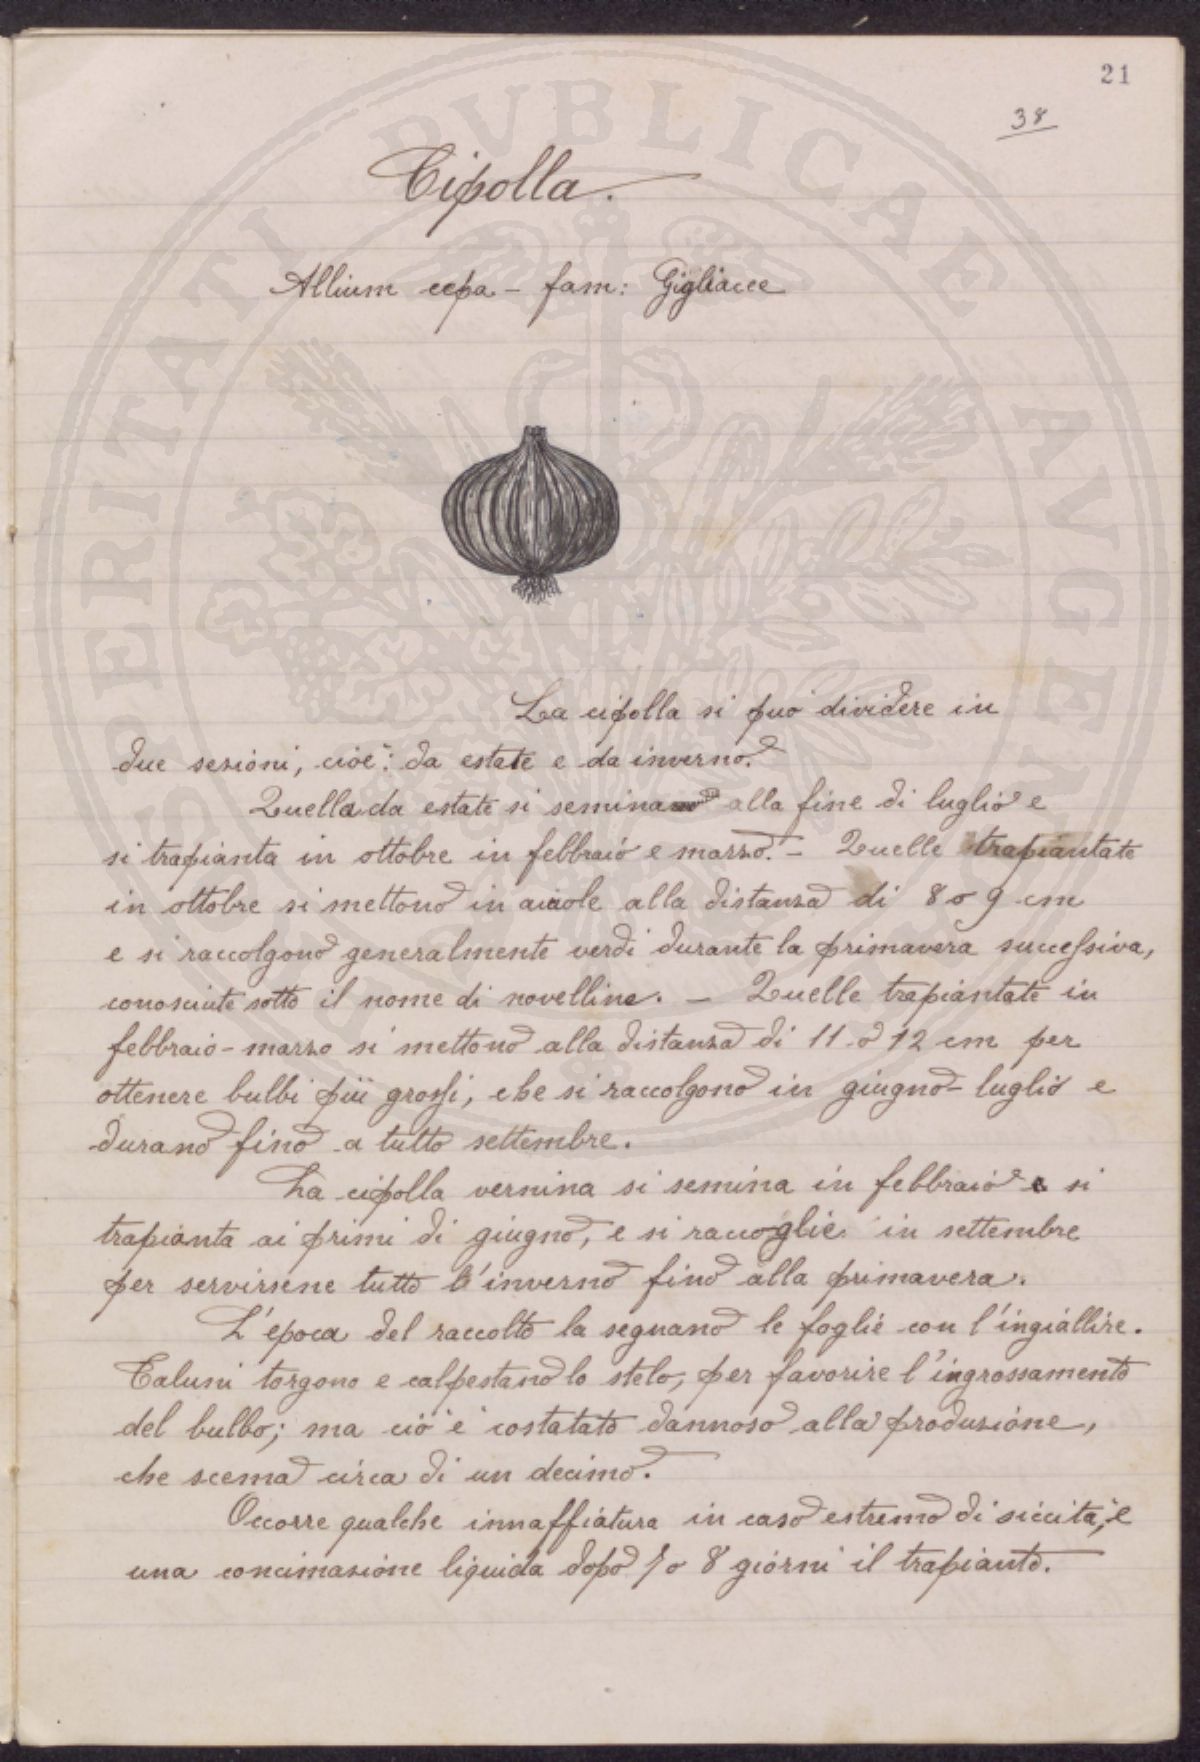 21
38
Cipolla.
Allium cepa - fam: Gigliacee
La cipolla si può dividere in
due sezioni, cioè: da estate e da inverno.
Quella da estate si semina alla fine di luglio e
si trapianta in ottobre in febbraio e marzo. - Quelle trapiantate
in ottobre si mettono in aiuole alla distanza di 8 o 9 cm
e si raccolgono generalmente verdi durante la primavera successiva,
conosciute sotto il nome di novelline. - Quelle trapiantate in
febbraio-marzo si mettono alla distanza di 11 o 12 cm per
ottenere bulbi più grossi, che si raccolgono in giugno-luglio e
durano fino a tutto settembre.
La cipolla vernina si semina in febbraio e si
trapianta ai primi di giugno, e si raccoglie in settembre
per servirsene tutto l'inverno fino alla primavera.
L'época del raccolto la segnano le foglie con l'ingiallire.
Taluni torgono e calpestano lo stelo, per favorire l'ingrossamento
del bulbo; ma ciò è costatato dannoso alla produzione,
che scema circa di un decimo.
Occorre qualche innaffiatura in caso estremo di siccità, e
una concimazione liquida dopo 7 o 8 giorni il trapianto.
PROSPERITATI PVBLICAE AVGENDAE